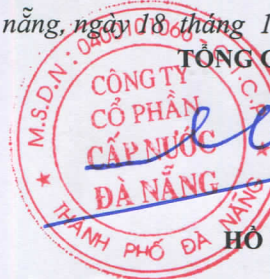 nẵng, ngày 18 tháng 1
TỔNG G
M.S.D.N: 0400101066 - C.T.C.P
CÔNG TY
CỔ PHẦN
CẤP NƯỚC
ĐÀ NẴNG
THÀNH PHỐ ĐÀ NẴNG
HỒ